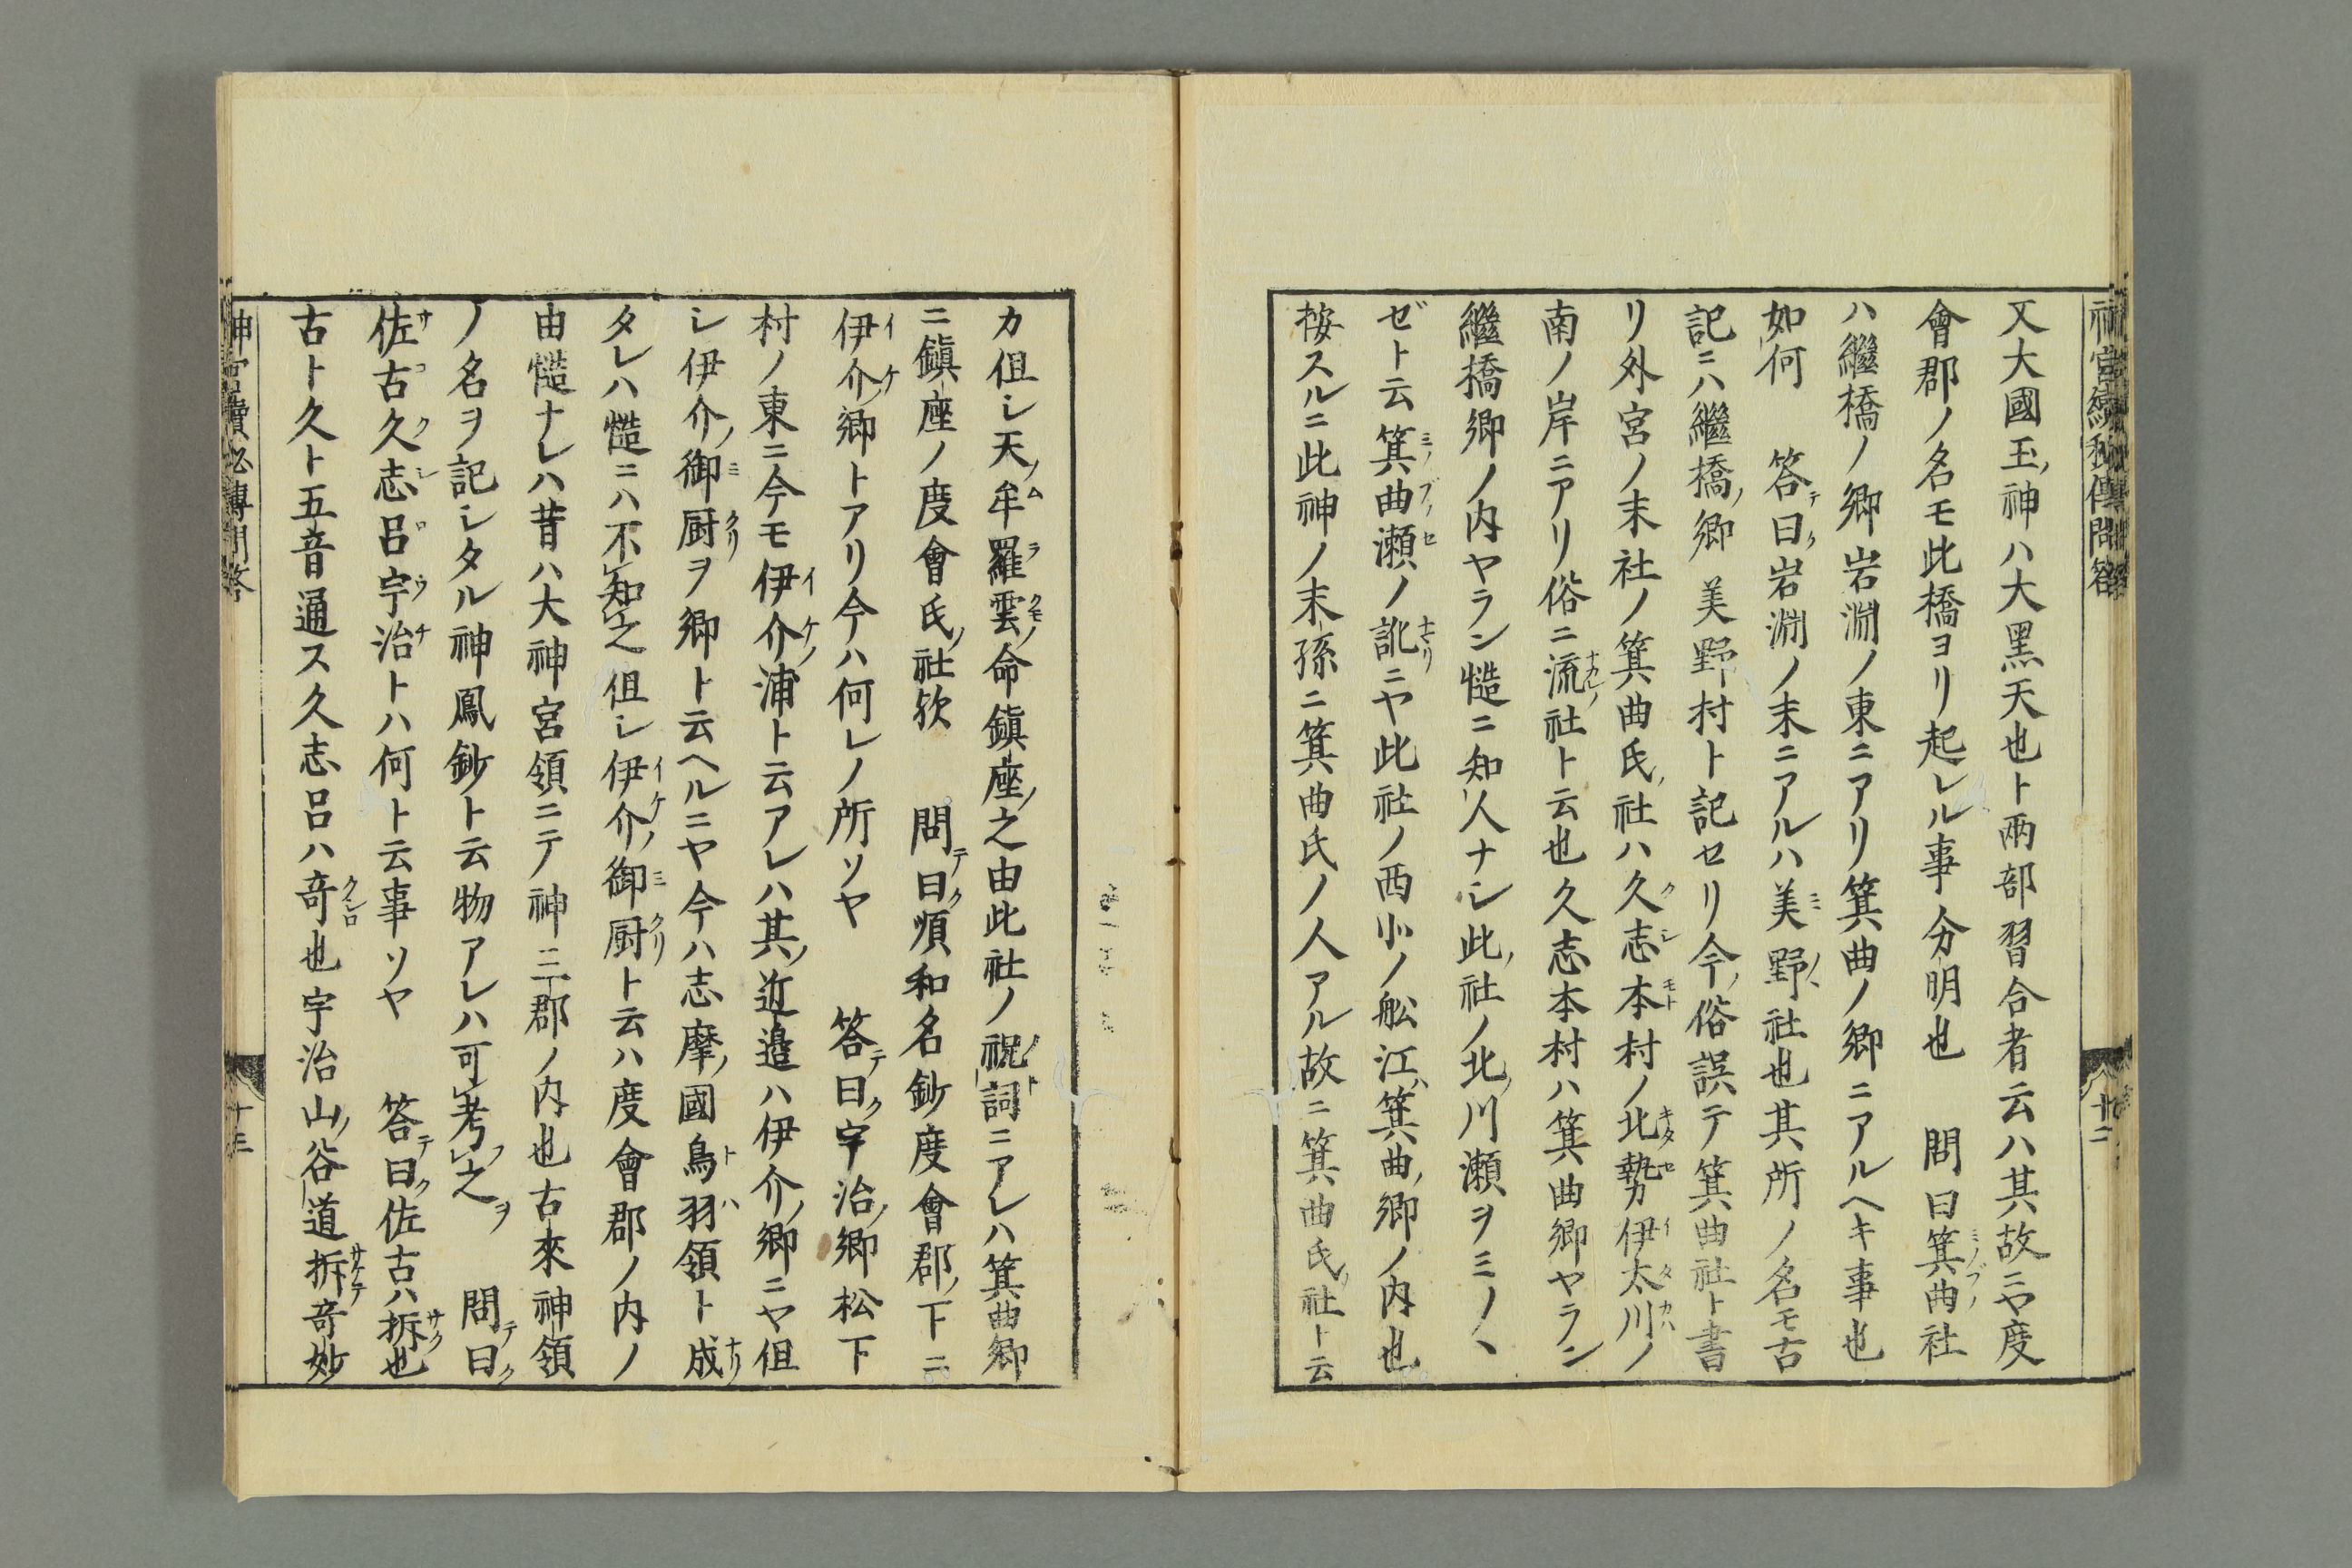 又大國玉ノ神ハ大黒天也ト兩部習合者云ハ其故ニヤ度
會郡ノ名モ此橋ヨリ起レル事分明也　問曰箕曲社
ハ繼橋ノ郷岩淵ノ東ニアリ箕曲ノ郷ニアルヘキ事也
如何　答テ曰ク岩淵ノ末ニアルハ美野ノ社也其所ノ名モ古
記ニハ繼橋ノ郷美野村ト記セリ今ノ俗誤テ箕曲社ト書
リ外宮ノ末社ノ箕曲氏ノ社ハ久志本村ノ北勢伊太川ノ
南ノ岸ニアリ俗ニ流社ト云也久志本村ハ箕曲郷ヤラン
繼橋郷ノ内ヤラン慥ニ知人ナシ此ノ社ノ北ノ川瀬ヲミノヽ
ゼト云箕曲瀬ノ訛ニヤ此社ノ西小ノ舩江ハ箕曲ノ郷ノ内也
按スルニ此神ノ末孫ニ箕曲氏ノ人アル故ニ箕曲氏ノ社ト云
カ但シ天ノ牟羅雲ノ命鎮座ノ之由此社ノ祝詞ニアレハ箕曲郷
ニ鎮座ノ度會氏ノ社欤　問テ曰ク順和名鈔度會郡ノ下ニ
伊介ノ郷トアリ今ハ何レノ所ソヤ　答テ曰ク宇治ノ郷松下
村ノ東ニ今モ伊介ノ浦ト云アレハ其ノ近邉ハ伊介ノ郷ニヤ但
シ伊介ノ御厨ヲ郷ト云ヘルニヤ今ハ志摩ノ國鳥羽領ト成
タレハ慥ニハ不知之但シ伊介ノ御厨ト云ハ度會郡ノ内ノ
由慥ナレハ昔ハ大神宮領ニテ神三郡ノ内也古來神領
ノ名ヲ記シタル神鳳鈔ト云物アレハ可考之ヲ　問テ曰ク
佐古久志呂宇治トハ何ト云事ソヤ　答テ曰ク佐古ハ拆也
古ト久ト五音通ス久志呂ハ竒也宇治山ノ谷道拆竒妙
神宮續秘傳問答
十二
神宮續秘傳問答
十三